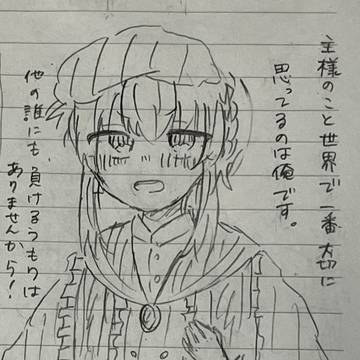 主様のこと世界で一番大切に
思ってるのは俺です。
他の誰にも、負けるつもりは
ありませんから！